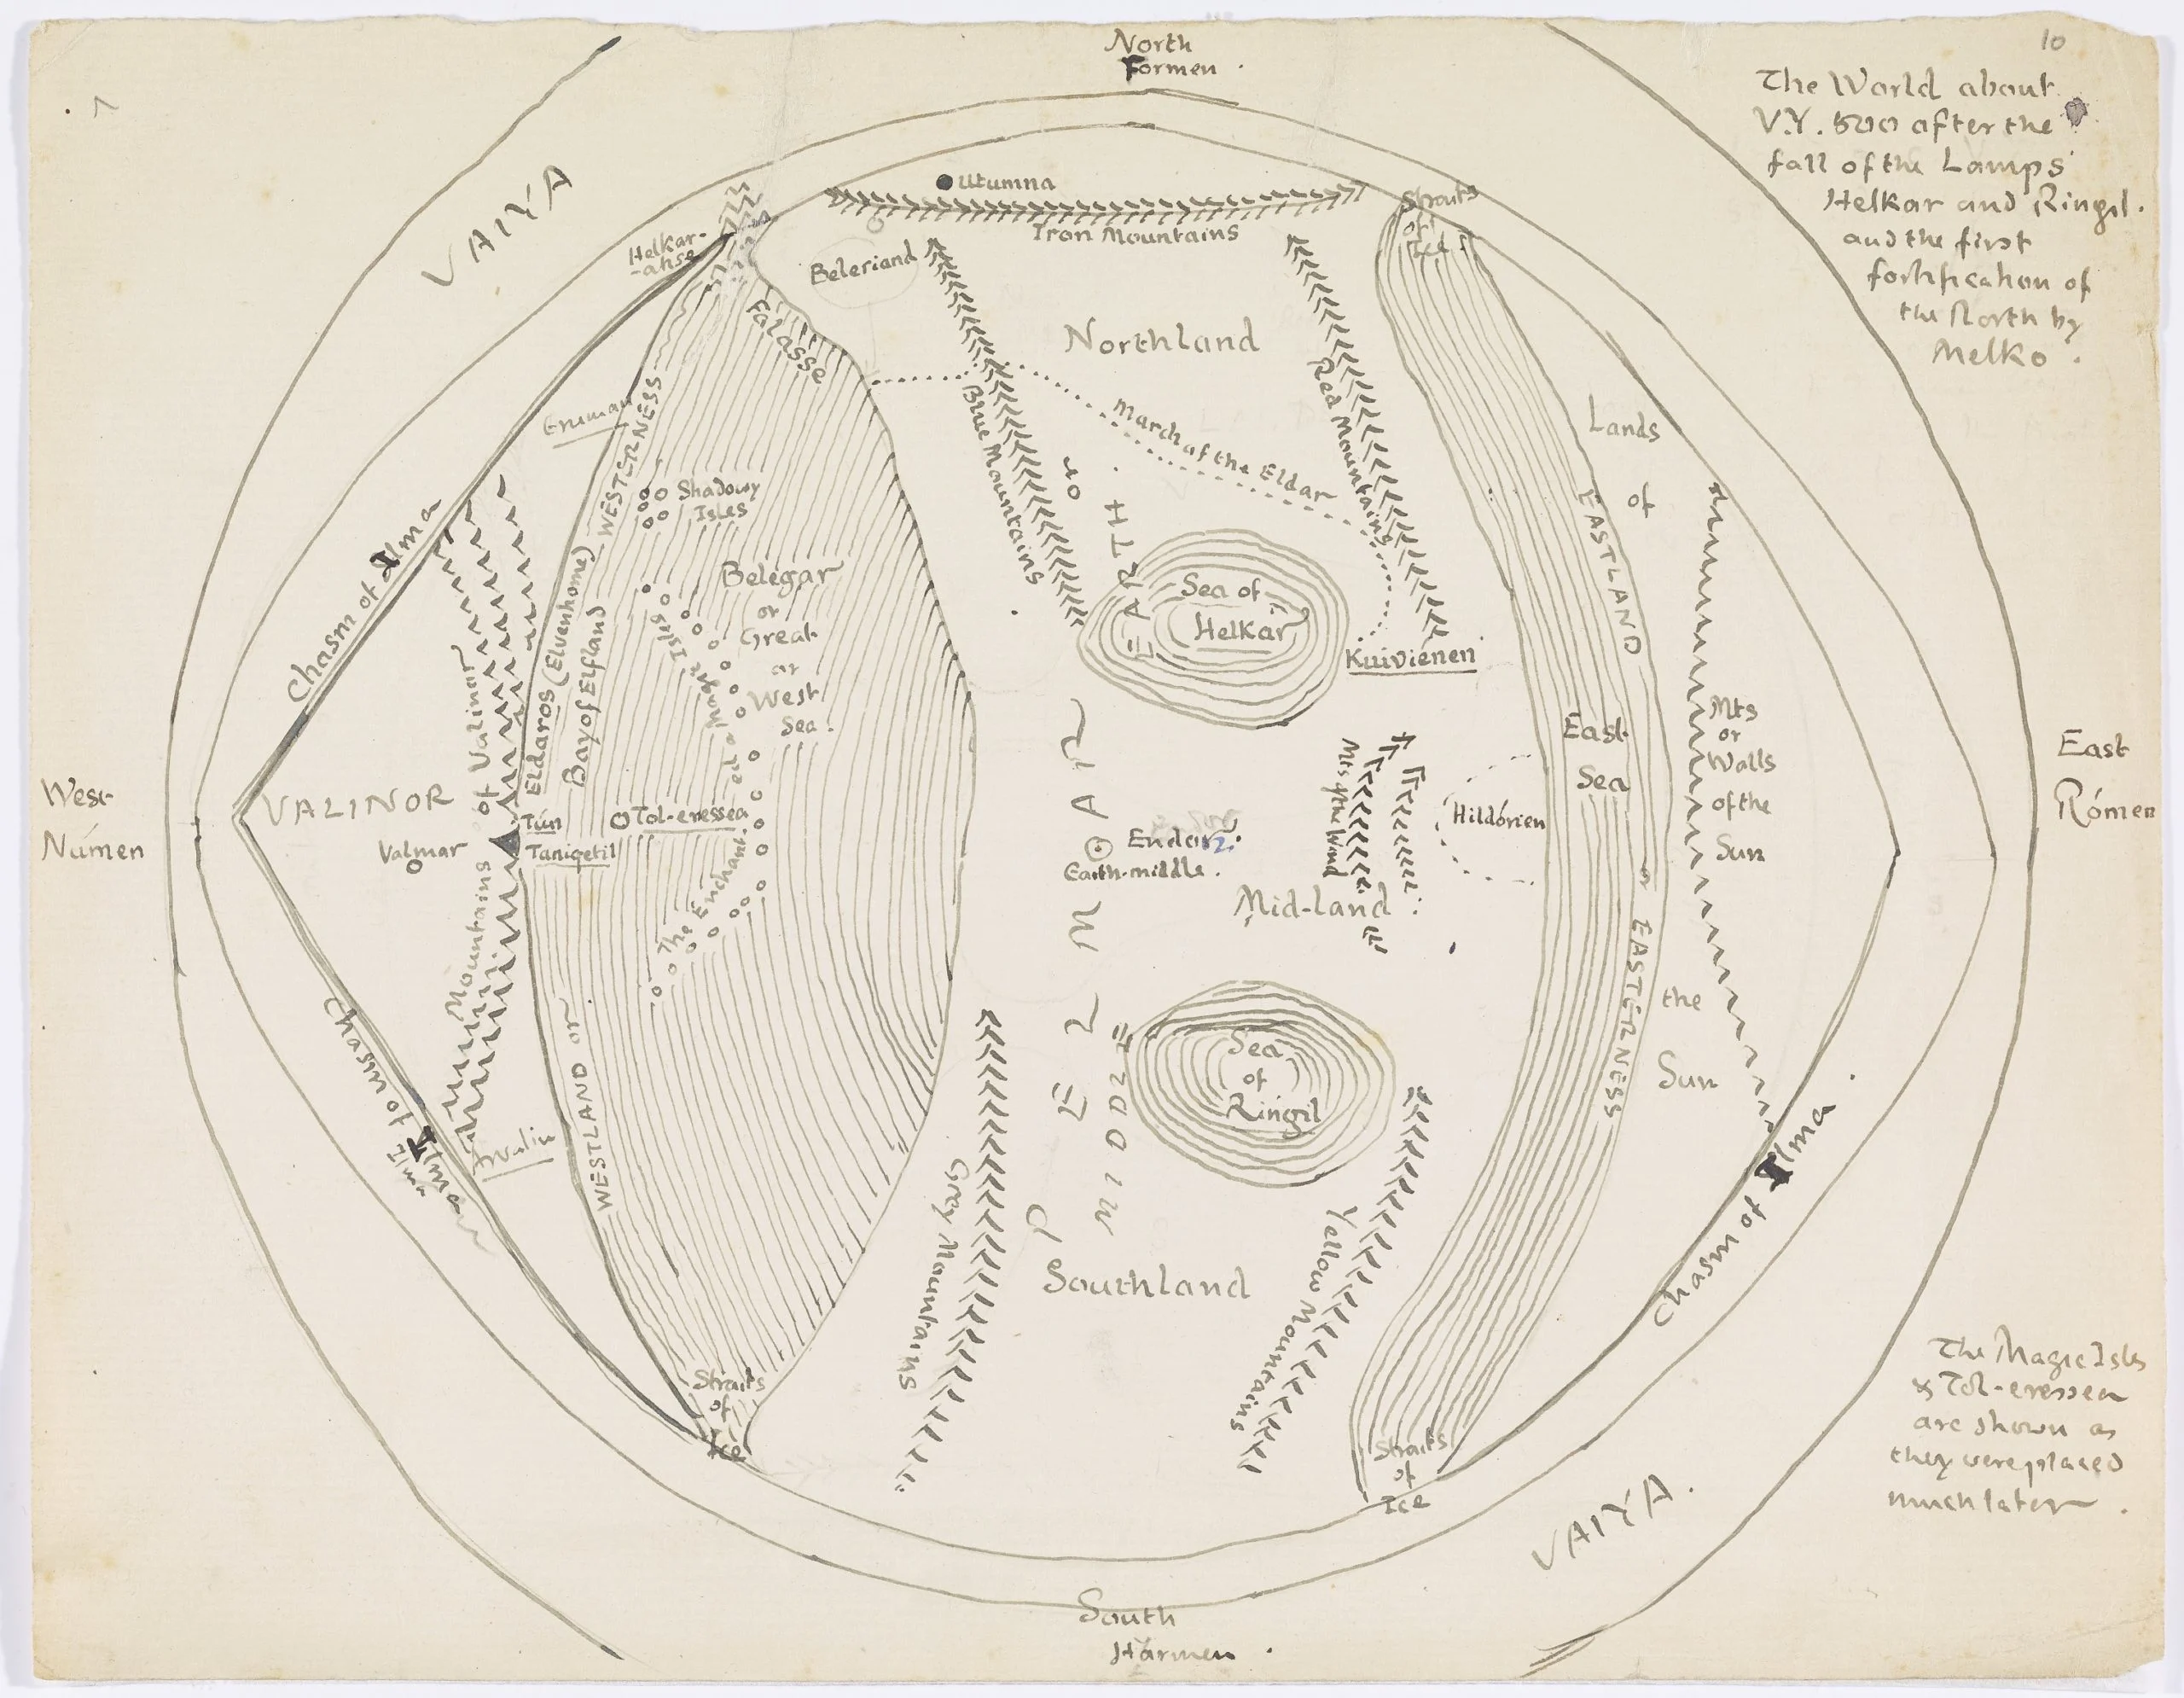 North
Formen .
10
The World about
V.Y. 500 after the
fall of the Lamps
Helkar and Ringil.
and the first
fortification of
the North by
Melko .
VAIYA
Utumna
Iron Mountains
Straits
of
Ice
Helkar-
-akse
Beleriand
Falasse
Northland
Eruman
WESTERNESS
Blue Mountains
March of the Eldar
Red Mountains
Lands
of
the
Sun
EASTLAND
or
EASTERNESS
Shadowy
Isles
Chasm of Ilma
Belegar
or
Great
or
West
Sea .
Sea of
Helkar
Kuiviénen
Eldaros (Elvenhome)
Bay of Elfland
The Enchanted or Magic Isles
Mountains of Valinor
VALINOR
Valmar
Tún
Taniqetil
Tol-eressea
West
Númen
East
Rómen
East
Sea
Mts
or
Walls
of the
Sun
Mts of the Wind
Hildórien
Endor
Earth-middle .
Mid-land
PELMAR
or
MIDDLE
EARTH
Sea
of
Ringil
Chasm of Ilma
Ilma
WESTLAND or
Grey Mountains
Southland
Yellow Mountains
Chasm of Ilma
Straits
of
Ice
Straits
of
Ice
VAIYA .
The Magic Isles
& Tol-eressea
are shown as
they were placed
much later .
South
Harmen .